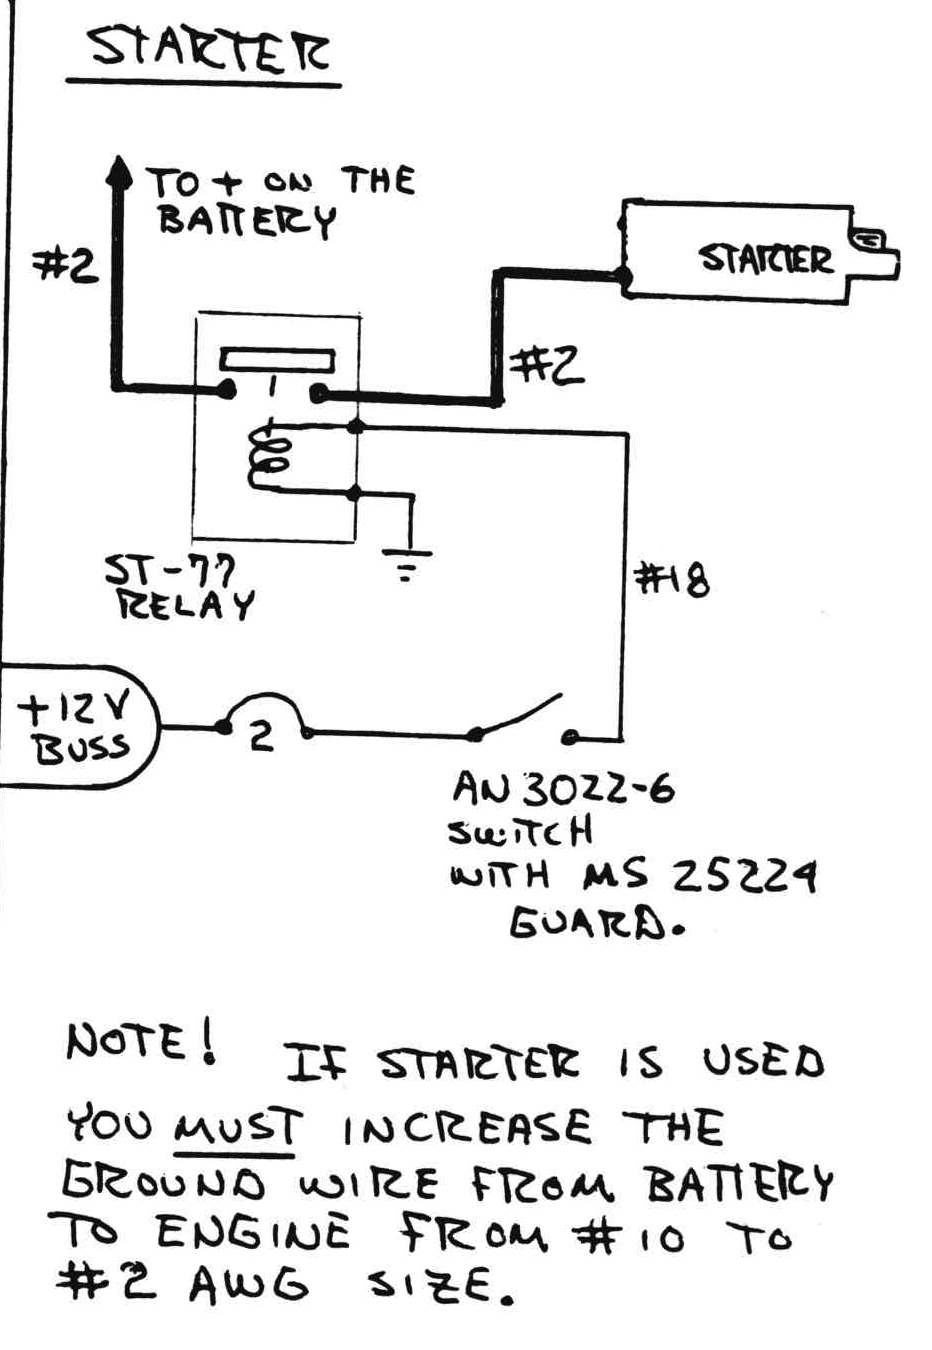 STARTER
TO + ON THE
BATTERY
#2
STARTER
#2
ST-77
RELAY
#18
+12V
BUSS
2
AN 3022-6
SWITCH
WITH MS 25224
GUARD.
NOTE! IF STARTER IS USED
YOU MUST INCREASE THE
GROUND WIRE FROM BATTERY
TO ENGINE FROM #10 TO
#2 AWG SIZE.